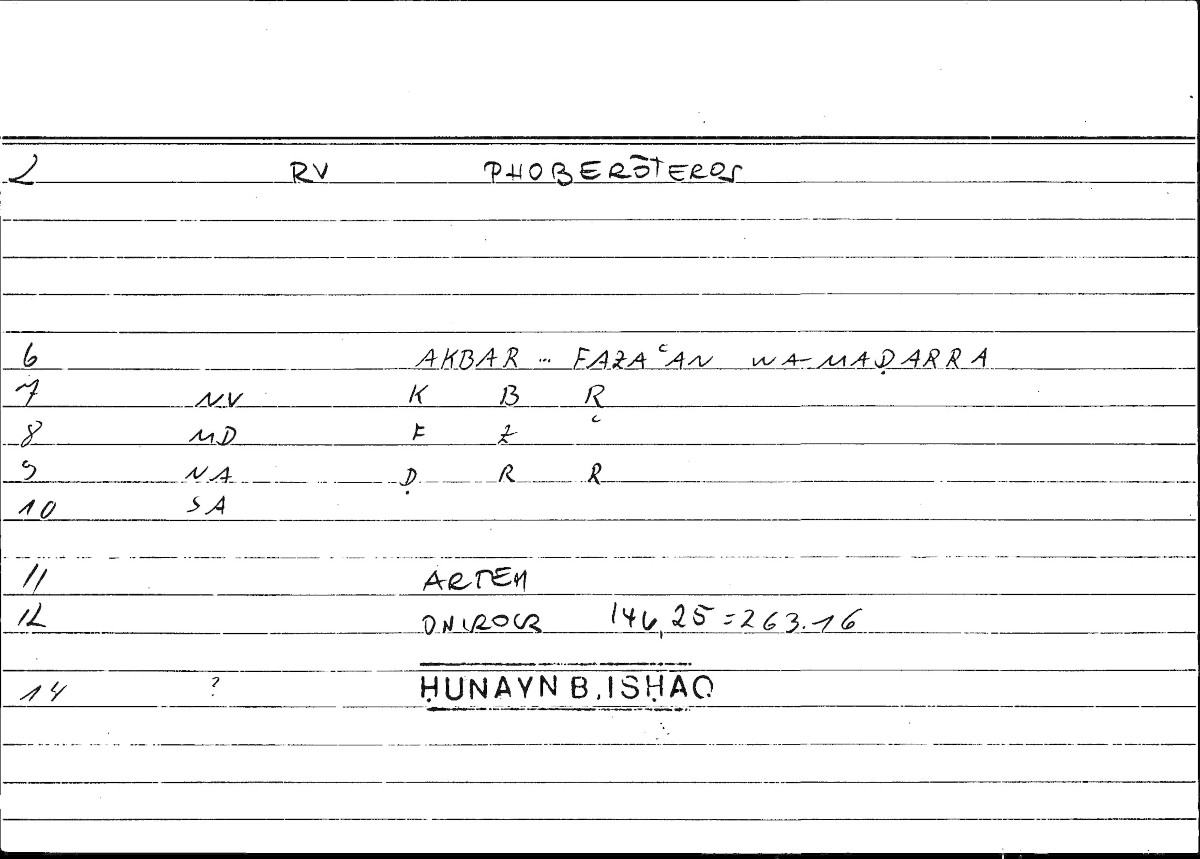 2 RV PHOBERŌTEROS
6 AKBAR ... FAZAʿAN WA-MAḌARRA
7 NV K B R
8 MD F Z ʿ
9 NA Ḍ R R
10 SA
11 ARTEM
12 ONIROCR 146,25=263.16
14 ? ḤUNAYN B. ISḤAQ